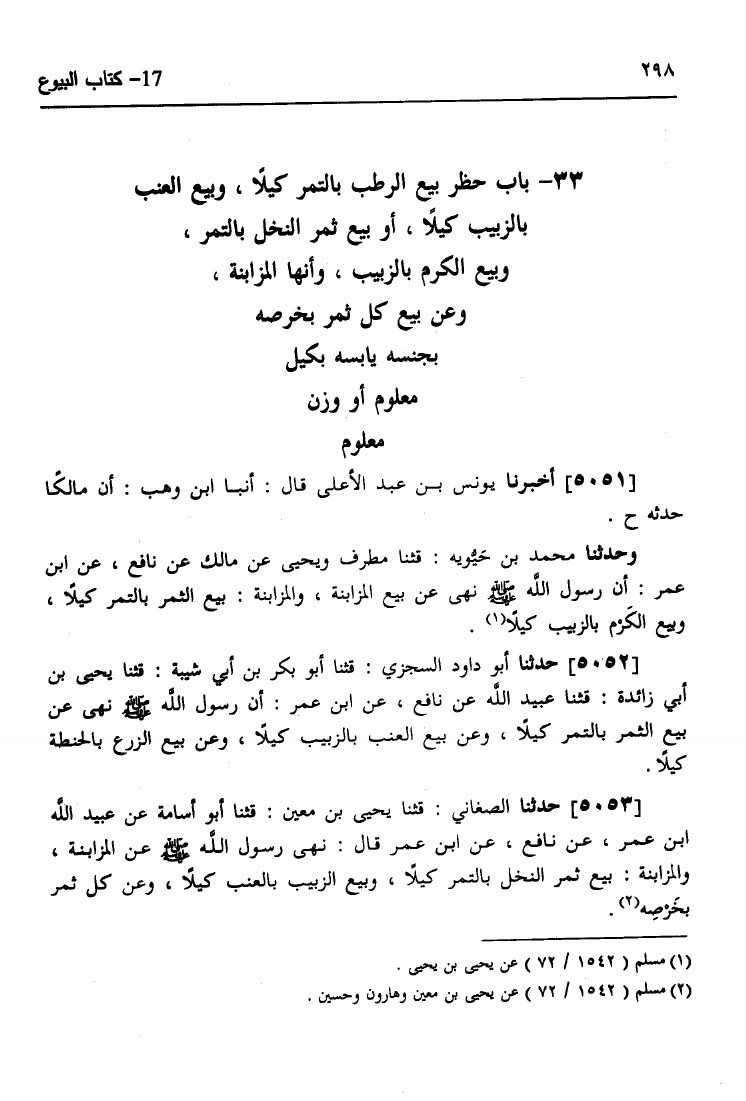 ٢٩٨
17- كتاب البيوع
٣٣- باب حظر بيع الرطب بالتمر كيلًا ، وبيع العنب
بالزبيب كيلًا ، أو بيع ثمر النخل بالتمر ،
وبيع الكرم بالزبيب ، وأنها المزابنة ،
وعن بيع كل ثمر بخرصه
بجنسه يابسه بكيل
معلوم أو وزن
معلوم
[٥٠٥١] أخبرنا يونس بـن عبد الأعلى قال : أنبـا ابن وهـب : أن مالكًا
حدثه ح .
وحدثنا محمد بن حَيُّويه : قثنا مطرف ويحيى عن مالك عن نافع ، عن ابن
عمر : أن رسول اللَّه ﷺ نهى عن بيع المزابنة ، والمزابنة : بيع الثمر بالتمر كيلًا ،
وبيع الكَرْم بالزبيب كيلًا(١) .
[٥٠٥٢] حدثنا أبو داود السجزي : قثنا أبو بكر بن أبي شيبة : قثنا يحيى بن
أبي زائدة : قثنا عبيد اللَّه عن نافع ، عن ابن عمر : أن رسول اللَّه ﷺ نهى عن
بيع الثمر بالتمر كيلًا ، وعن بيع العنب بالزبيب كيلًا ، وعن بيع الزرع بالحنطة
كيلًا .
[٥٠٥٣] حدثنا الصغاني : قثنا يحيى بن معين : قثنا أبو أسامة عن عبيد اللَّه
ابن عمر ، عن نافع ، عن ابن عمر قال : نهى رسول اللَّه ﷺ عن المزابنة ،
والمزابنة : بيع ثمر النخل بالتمر كيلًا ، وبيع الزبيب بالعنب كيلًا ، وعن كل ثمر
بخَرْصِه(٢) .
(١) مسلم ( ١٥٤٢ / ٧٢ ) عن يحيى بن يحيى .
(٢) مسلم ( ١٥٤٢ / ٧٢ ) عن يحيى بن معين وهارون وحسين .